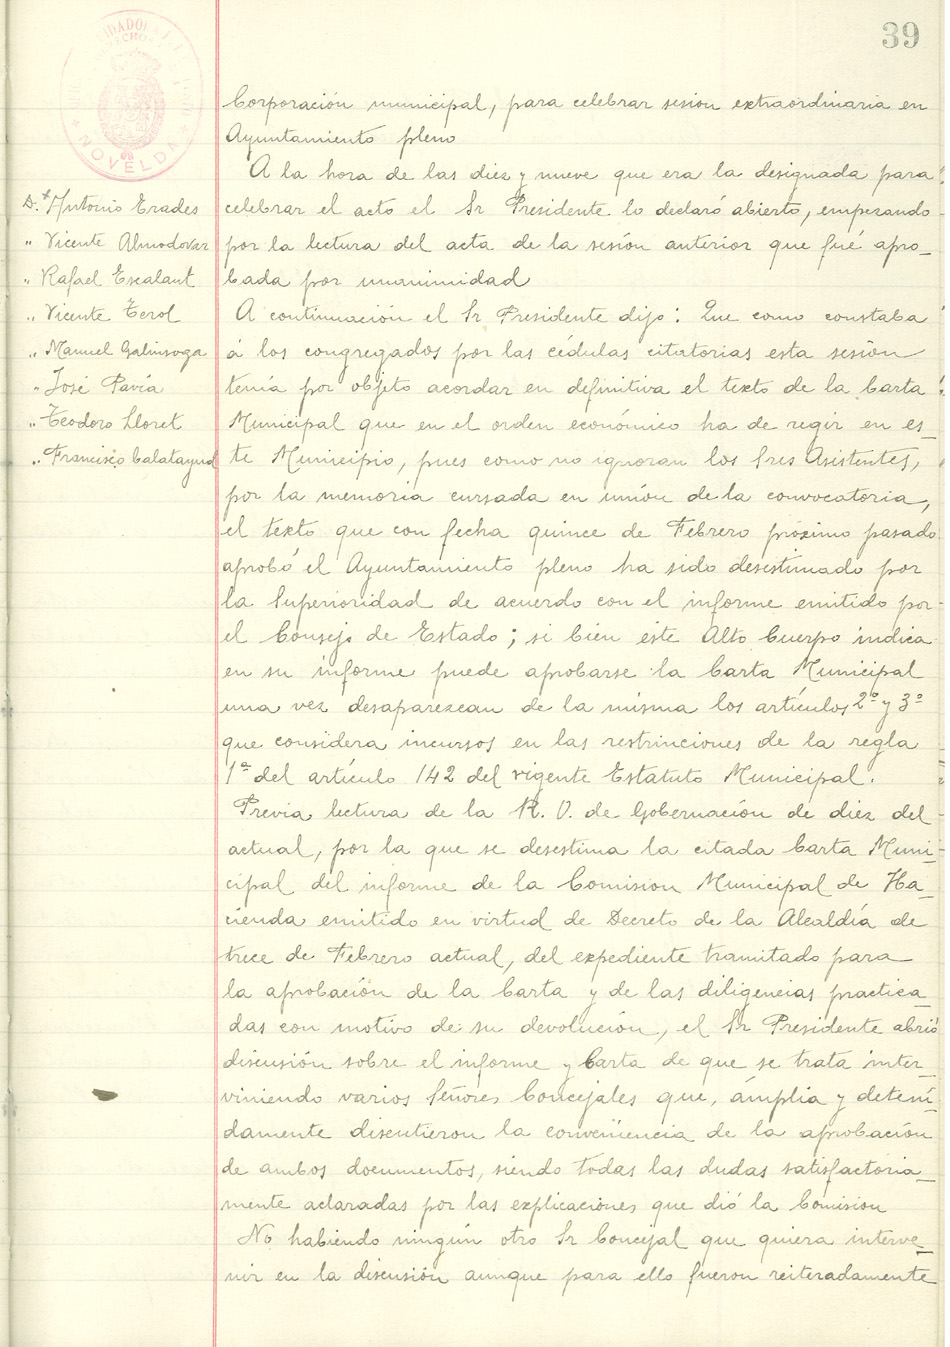 39
NOVELDA
Corporación municipal, para celebrar sesion extraordinaria en
Ayuntamiento pleno
A la hora de las diez y nueve que era la designada para
celebrar el acto el Sr Presidente lo declaró abierto, empezando
por la lectura del acta de la sesión anterior que fué apro_
bada por unanimidad
A continuación el Sr Presidente dijo: Que como constaba
á los congregados por las cédulas citatorias esta sesión
tenía por objeto acordar en definitiva el texto de la Carta
Municipal que en el orden económico ha de regir en es_
te Municipio, pues como no ignoran los Sres Asistentes,
por la memoria cursada en unión de la convocatoria,
el texto que con fecha quince de Febrero próximo pasado
aprobó el Ayuntamiento pleno ha sido desestimado por
la Superioridad de acuerdo con el informe emitido por
el Consejo de Estado; si bien este Alto Cuerpo indica
en su informe puede aprobarse la Carta Municipal
una vez desaparezcan de la misma los artículos 2º y 3º
que considera incursos en las restrinciones de la regla
1ª del artículo 142 del vigente Estatuto Municipal.
Previa lectura de la R. O. de Gobernación de diez del
actual, por la que se desestima la citada Carta Muni_
cipal del informe de la Comision Municipal de Ha_
cienda emitido en virtud de Decreto de la Alcaldía de
trece de Febrero actual, del expediente tramitado para
la aprobación de la Carta y de las diligencias practica_
das con motivo de su devolución, el Sr Presidente abrió
discusión sobre el informe y Carta de que se trata inter_
viniendo varios Señores Concejales que, ámplia y deteni_
damente discutieron la conveniencia de la aprobación
de ambos documentos, siendo todas las dudas satisfactoria_
mente aclaradas por las explicaciones que dió la Comision
No habiendo ningún otro Sr Concejal que quiera interve_
nir en la discusión aunque para ello fueron reiteradamente
D. Antonio Erades
" Vicente Almodovar
" Rafael Escalant
" Vicente Terol
" Manuel Galinsoga
" José Pavía
" Teodoro Lloret
" Francisco Calatayud